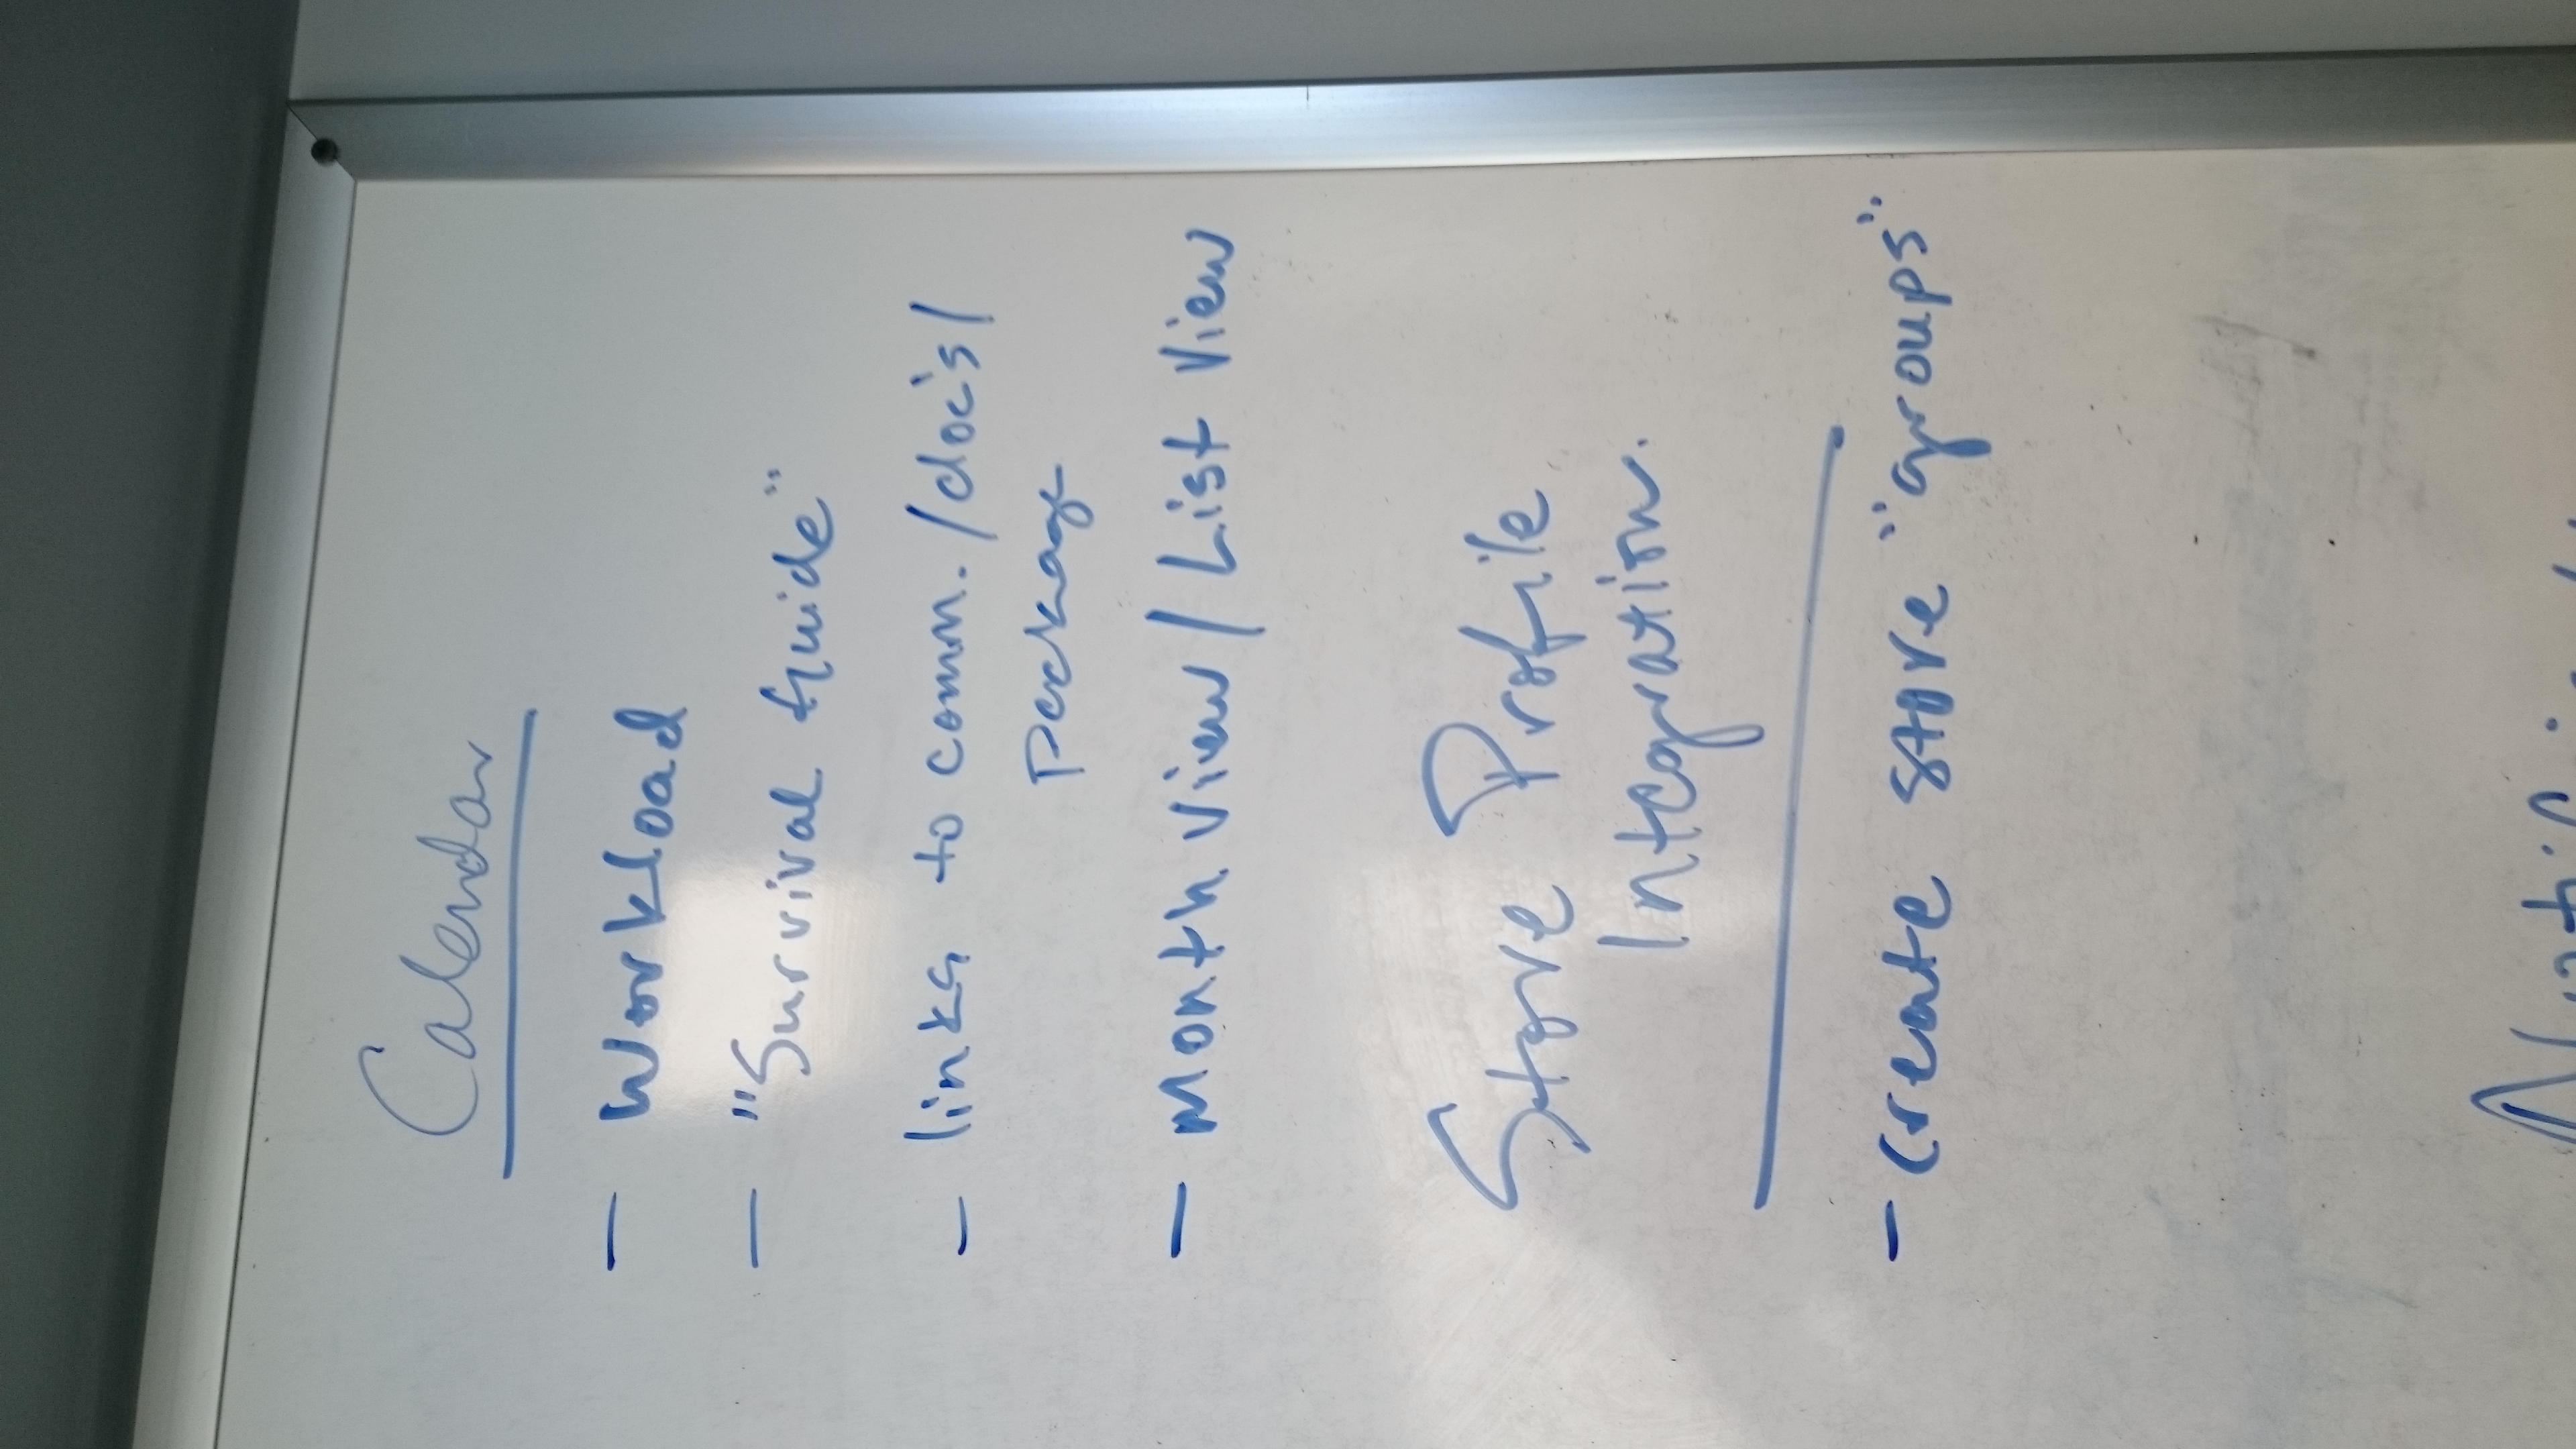 Calendar
- Workload
- "Survival Guide"
- links to comm. /doc's/
package
- Month View / List View
Store Profile
Integration.
- create store "groups"